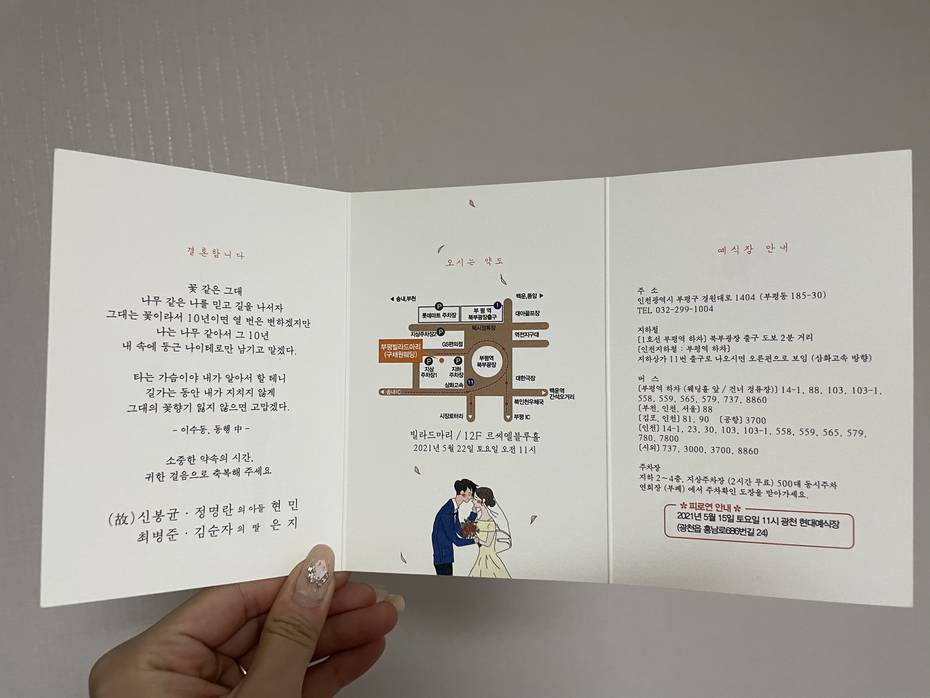 결혼합니다
꽃 같은 그대
나무 같은 나를 믿고 길을 나서자
그대는 꽃이라서 10년이면 열 번은 변하겠지만
나는 나무 같아서 그 10년
내 속에 둥근 나이테로만 남기고 말겠다.
타는 가슴이야 내가 알아서 할 테니
길가는 동안 내가 지치지 않게
그대의 꽃향기 잃지 않으면 고맙겠다.
- 이수동, 동행 中 -
소중한 약속의 시간,
귀한 걸음으로 축복해 주세요
(故) 신봉균 · 정명란 의 아들 현 민
최병준 · 김순자 의 딸 은 지
오시는 약도
송내,부천
백운,동암
P
롯데마트 주차장
1
부 평 역
북부광장출구
대아골프장
지상주차장2 P
택시정류장
백전지구대
GS편의점
부평빌라드마리
(구채원웨딩)
P
지상
주차장1
P
지하
주차장
부평역
북부광장
대한극장
삼화고속
11
송내IC
백운역
간석오거리
북인천우체국
시장로터리
부평 IC
빌라드마리 / 12F 르씨엘블루홀
2021년 5월 22일 토요일 오전 11시
예식장 안내
주 소
인천광역시 부평구 경원대로 1404 (부평동 185-30)
TEL 032-299-1004
지하철
[1호선 부평역 하차] 북부광장 출구 도보 2분 거리
[인천지하철 : 부평역 하차]
지하상가 11번 출구로 나오시면 오른편으로 보임 (삼화고속 방향)
버 스
[부평역 하차 (웨딩홀 앞 / 건너 정류장)] 14-1, 88, 103, 103-1,
558, 559, 565, 579, 737, 8860
[부천, 인천, 서울] 88
[김포, 인천] 81, 90 [공항] 3700
[인천] 14-1, 23, 30, 103, 103-1, 558, 559, 565, 579,
780, 7800
[시외] 737, 3000, 3700, 8860
주차장
지하 2~4층, 지상주차장 (2시간 무료) 500대 동시주차
연회장 (부페) 에서 주차확인 도장을 받아가세요.
피로연 안내
2021년 5월 15일 토요일 11시 광천 현대예식장
(광천읍 홍남로686번길 24)